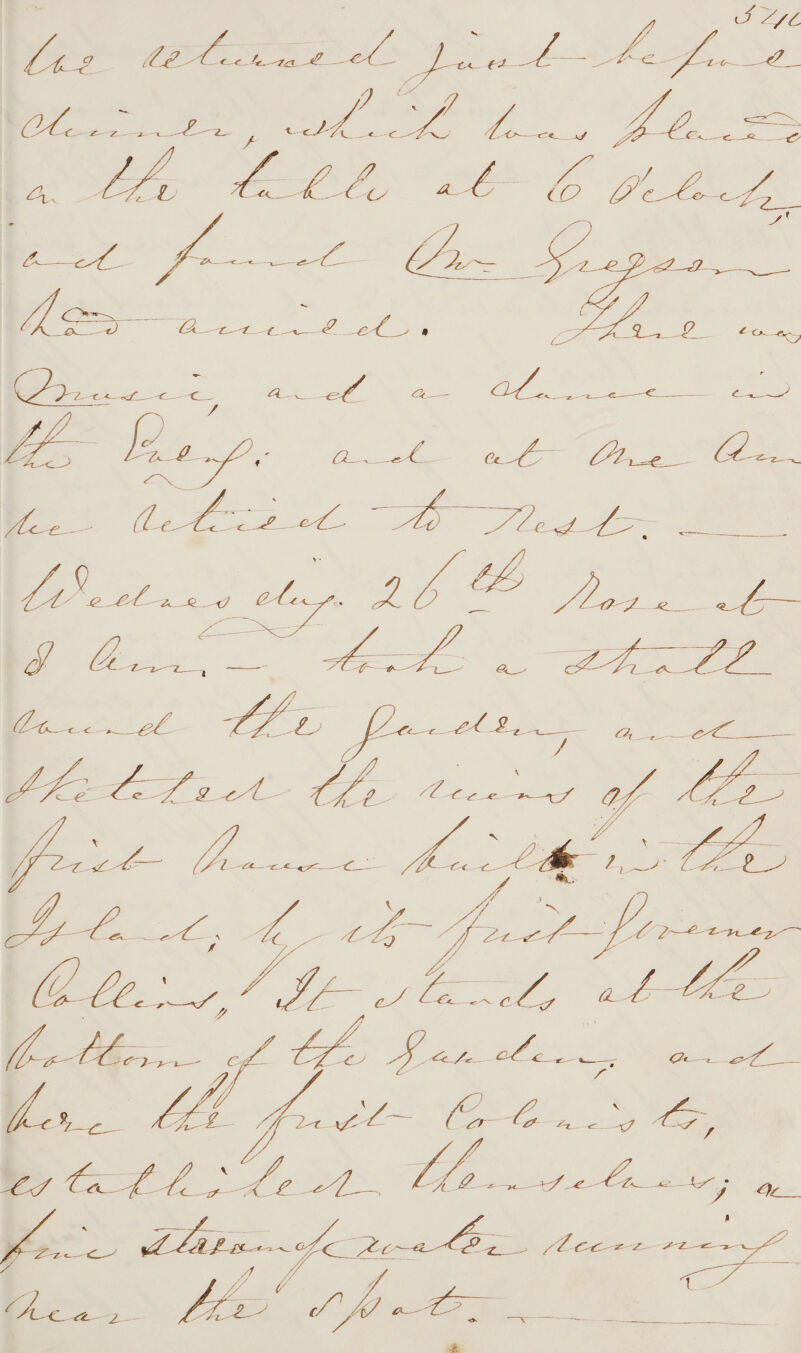 We returned just before
dinner, which was placed
on the table at 6 O'clock,
and found Mr Gregson
had arrived. There was
Music, and a dance in
the Eveng: and at One Am
we retired to Rest.
Wednesday. 26th Rose at
8 Am, — took a stroll
round the garden, and
sketched the ruins of the
first house built in the
Island; by its first Governer
Collins, It stands at the
bottom of the Garden, and
here the first Colonists,
established themselves; a
fine stream of water running
near the spot.